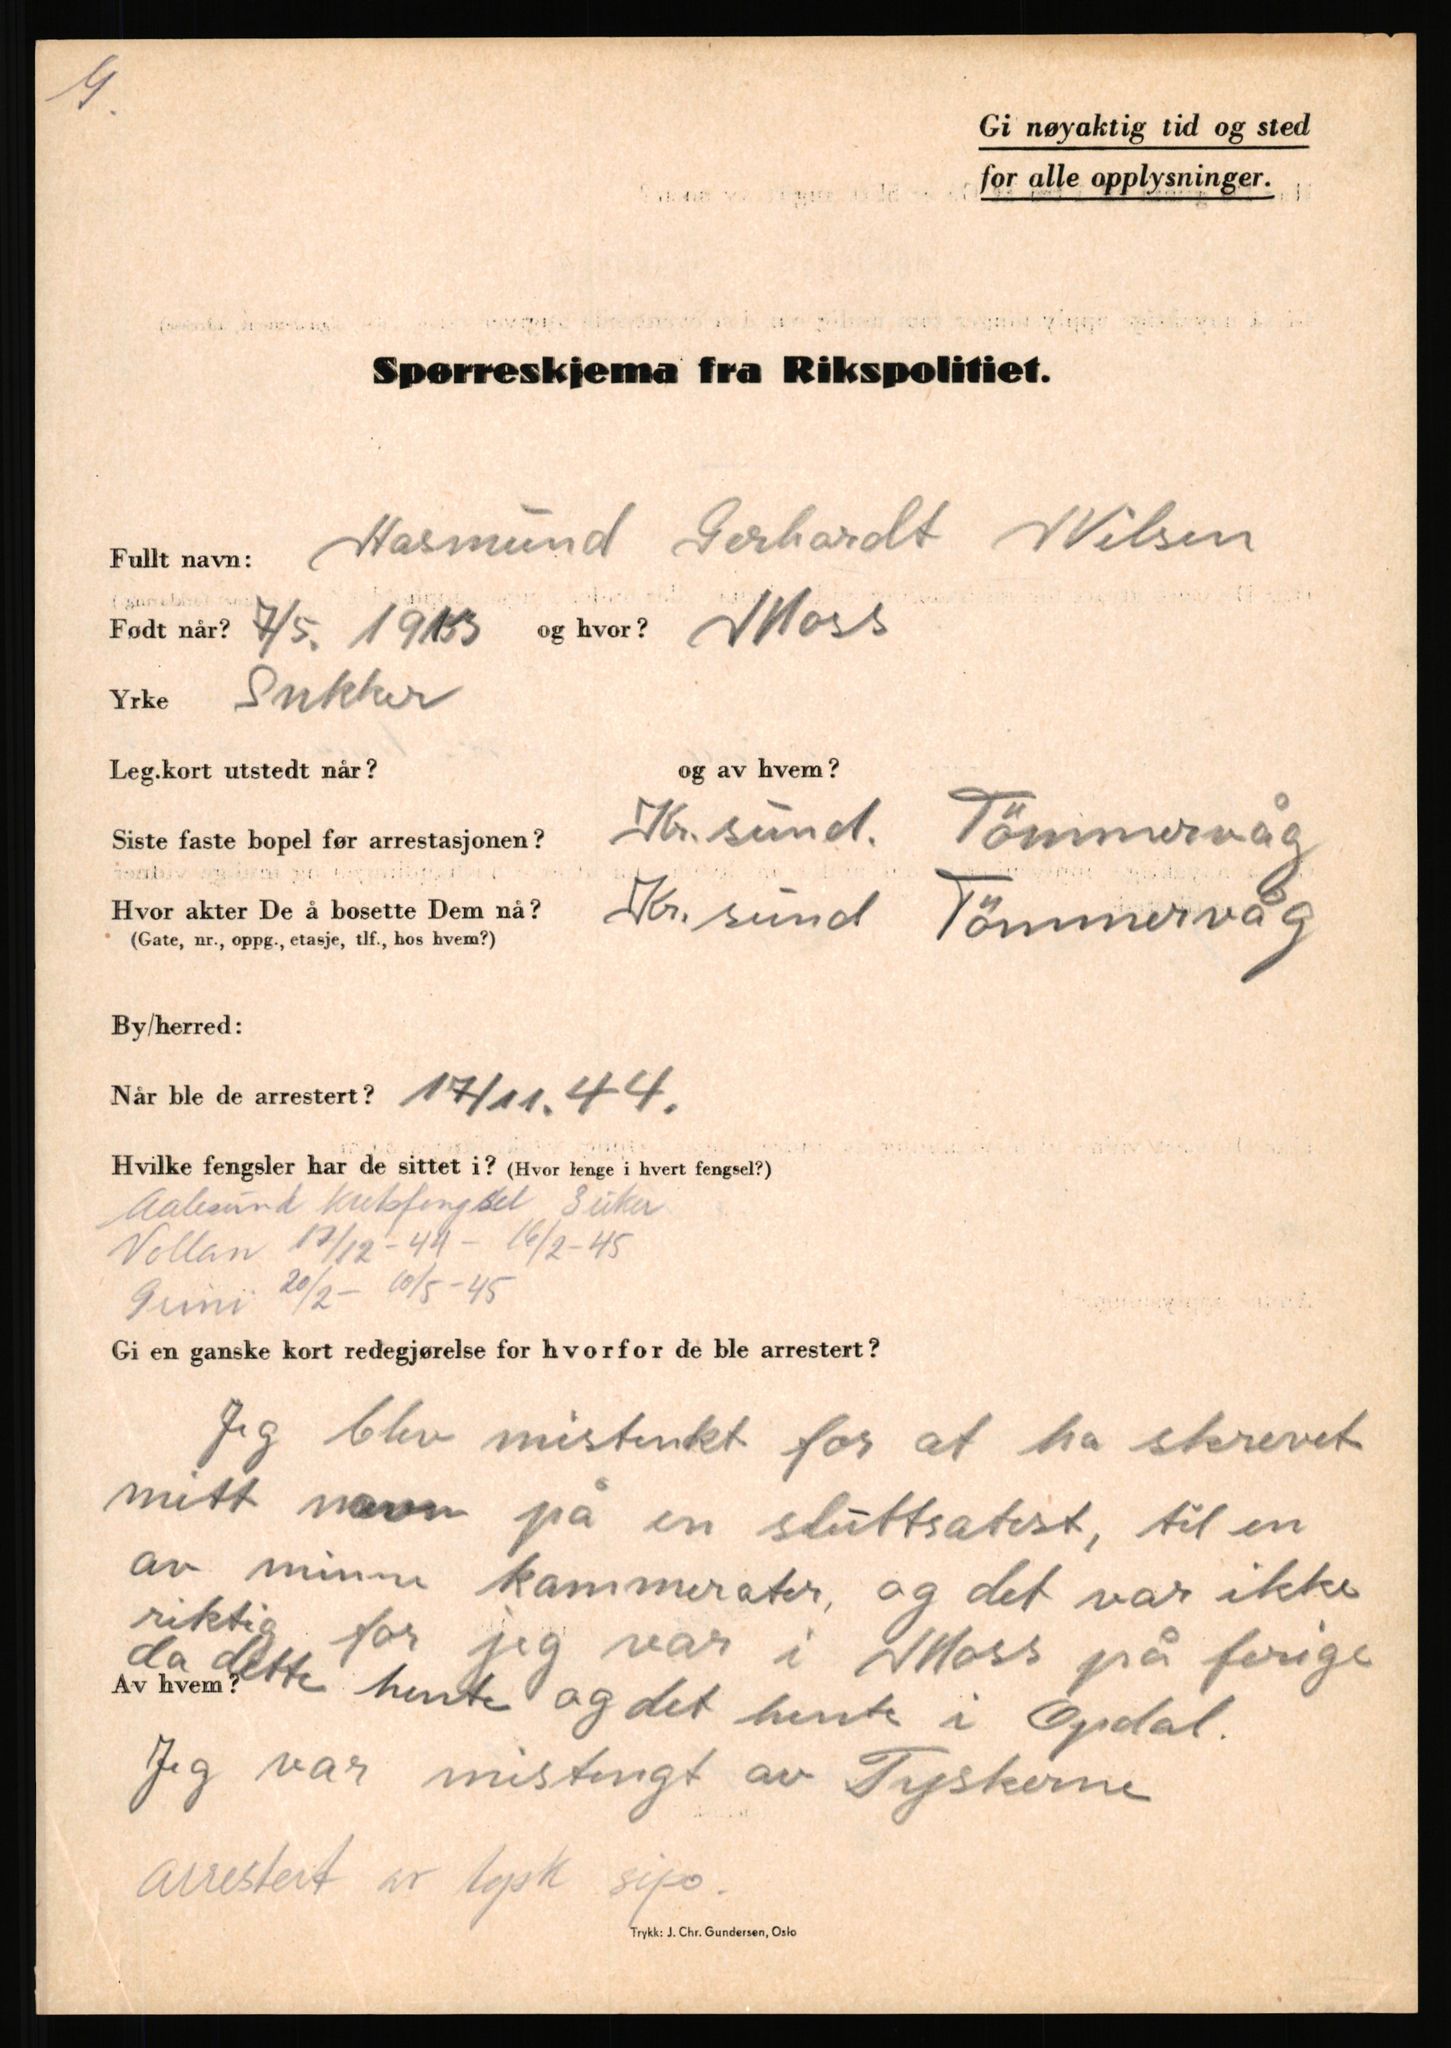 G.
Gi nøyaktig tid og sted
for alle opplysninger.
Spørreskjema fra Rikspolitiet.
Fullt navn: Gerhardt Nilsen
Født når? 7/5. 1913 og hvor? Moss
Yrke Snikker
Leg.kort utstedt når? og av hvem?
Siste faste bopel før arrestasjonen? Kr. sund. Tömmervåg
Hvor akter De å bosette Dem nå? Kr. sund Tömmervåg
(Gate, nr., oppg., etasje, tlf., hos hvem?)
By/herred:
Når ble de arrestert? 17/11. 44.
Hvilke fengsler har de sittet i? (Hvor lenge i hvert fengsel?)
Aalesund kretsfengsel 3 uker
Vollan 17/12-44 - 16/2-45
Grini 20/2 - 10/5-45
Gi en ganske kort redegjørelse for hvorfor de ble arrestert?
Jeg blev mistenkt for at ha skrevet
mitt navn på en sluttsatest, til en
av minne kammerater, og det var ikke
riktig for jeg var i Moss på ferige
da dette hente og det hente i Opdal.
Av hvem?
Jeg var mistengt av Tyskerne
Arrestert av tysk sipo.
Trykk: J. Chr. Gundersen, Oslo